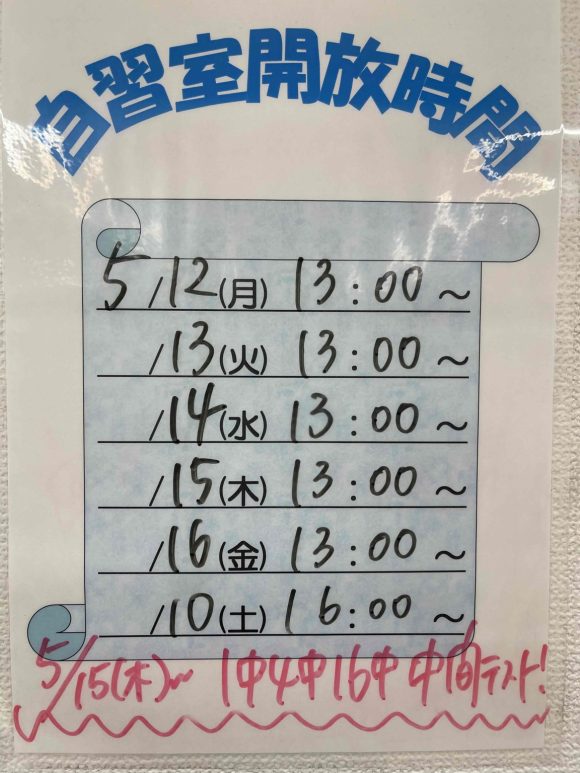 自習室開放時間
5/12(月) 13:00~
/13(火) 13:00~
/14(水) 13:00~
/15(木) 13:00~
/16(金) 13:00~
/10(土) 16:00~
5/15(木)~ 1中4中16中 中間テスト!